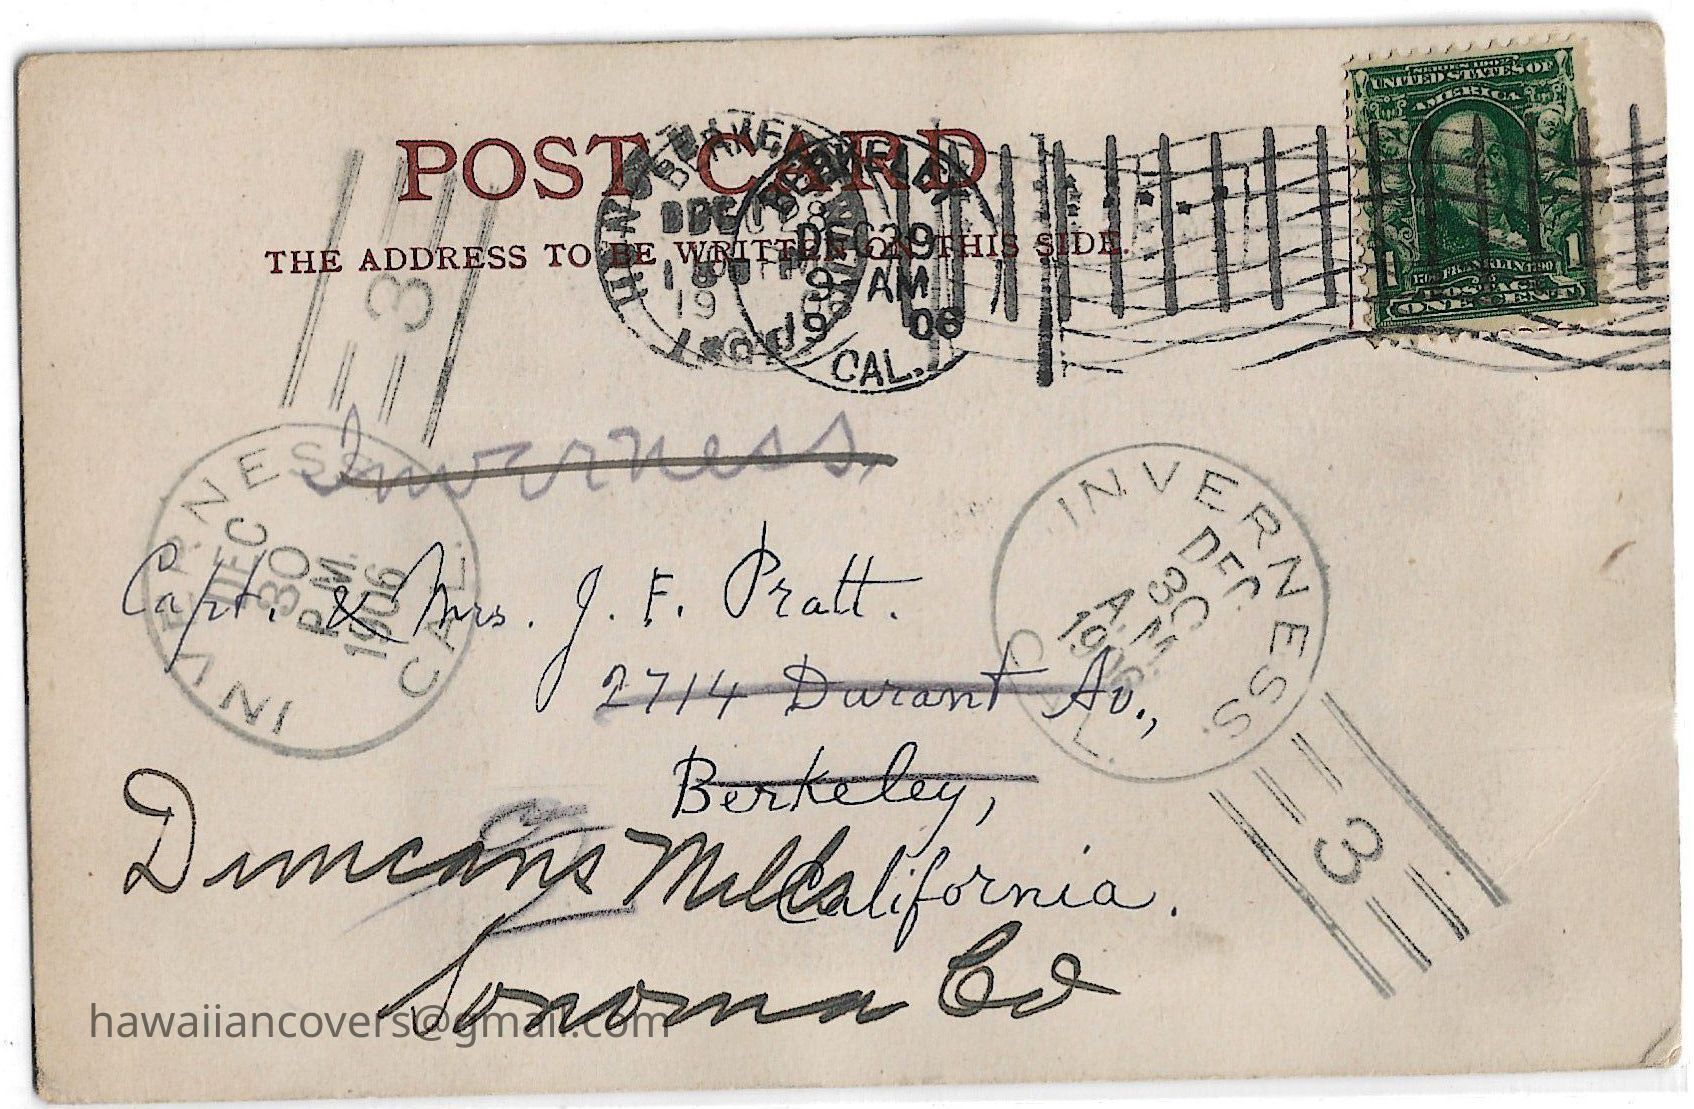 POST CARD
THE ADDRESS TO BE WRITTEN ON THIS SIDE.
SERIES 1902
UNITED STATES OF
AMERICA
FRANKLIN
1 1
POSTAGE
ONE CENT
BERKELEY
DEC 29
9 AM
19 06
CAL.
3
Inverness
INVERNESS
DEC
30
P.M.
1906
CAL.
INVERNESS
DEC
30
A.M.
1906
CAL.
3
Capt. & Mrs. J. F. Pratt.
2714 Durant Av.,
Berkeley,
California.
Duncans Mills
Sonoma Co
hawaiiancovers@gmail.com